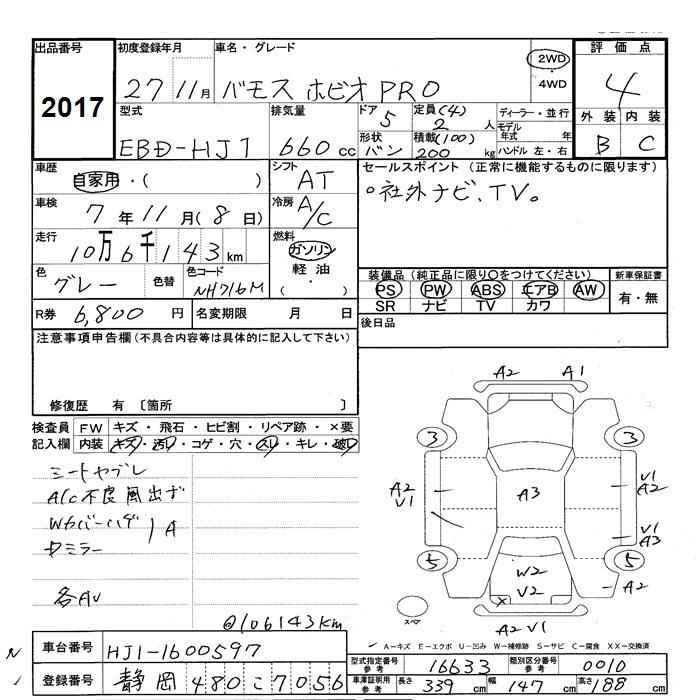 出品番号 初度登録年月 車名・グレード 評価点
2017 27 11月 バモス ホビオ PRO 2WD ・ 4WD 4
型式 排気量 ドア 定員(4) ディーラー・並行 外装 内装
EBD-HJ1 660cc 5 2人 モデル年式 年 B C
形状 バン 積載(100) 200kg ハンドル 左・右
車歴 自家用・( ) シフト AT セールスポイント (正常に機能するものに限ります)
○社外ナビ、TV。
車検 7年11月(8日) 冷房 A/C
走行 10万6千143km 燃料 ガソリン 軽油・( )
色 グレー 色替 色コード NH716M 装備品 (純正品に限り○をつけてください) 新車保証書
PS PW ABS エアB AW 有・無
SR ナビ TV カワ
R券 6,800円 名変期限 月 日 後日品
注意事項申告欄(不具合内容等は具体的に記入して下さい)
修復歴 有 〔箇所 〕
検査員 FW キズ・飛石・ヒビ割・リペア跡・×要
記入欄 内装 キズ・汚れ・コゲ・穴・スレ・キレ・破れ
シートヤブレ
A/c不良風出ず
Wカバーハゲ A
ミラー
各AU
@106143km
A2 A1
3 3
A2 V1 A3 V1 A2
V1 A3
5 5
W2 V2 A2
スペア A2 V1
A-キズ E-エクボ U-凹み W-補修跡 S-サビ C-腐食 XX-交換済
車台番号 HJ1-1600597
型式指定番号 参考 16633 類別区分番号 参考 0010
登録番号 静岡 480こ7056
車庫証明用 参考 長さ 339cm 幅 147cm 高さ 188cm